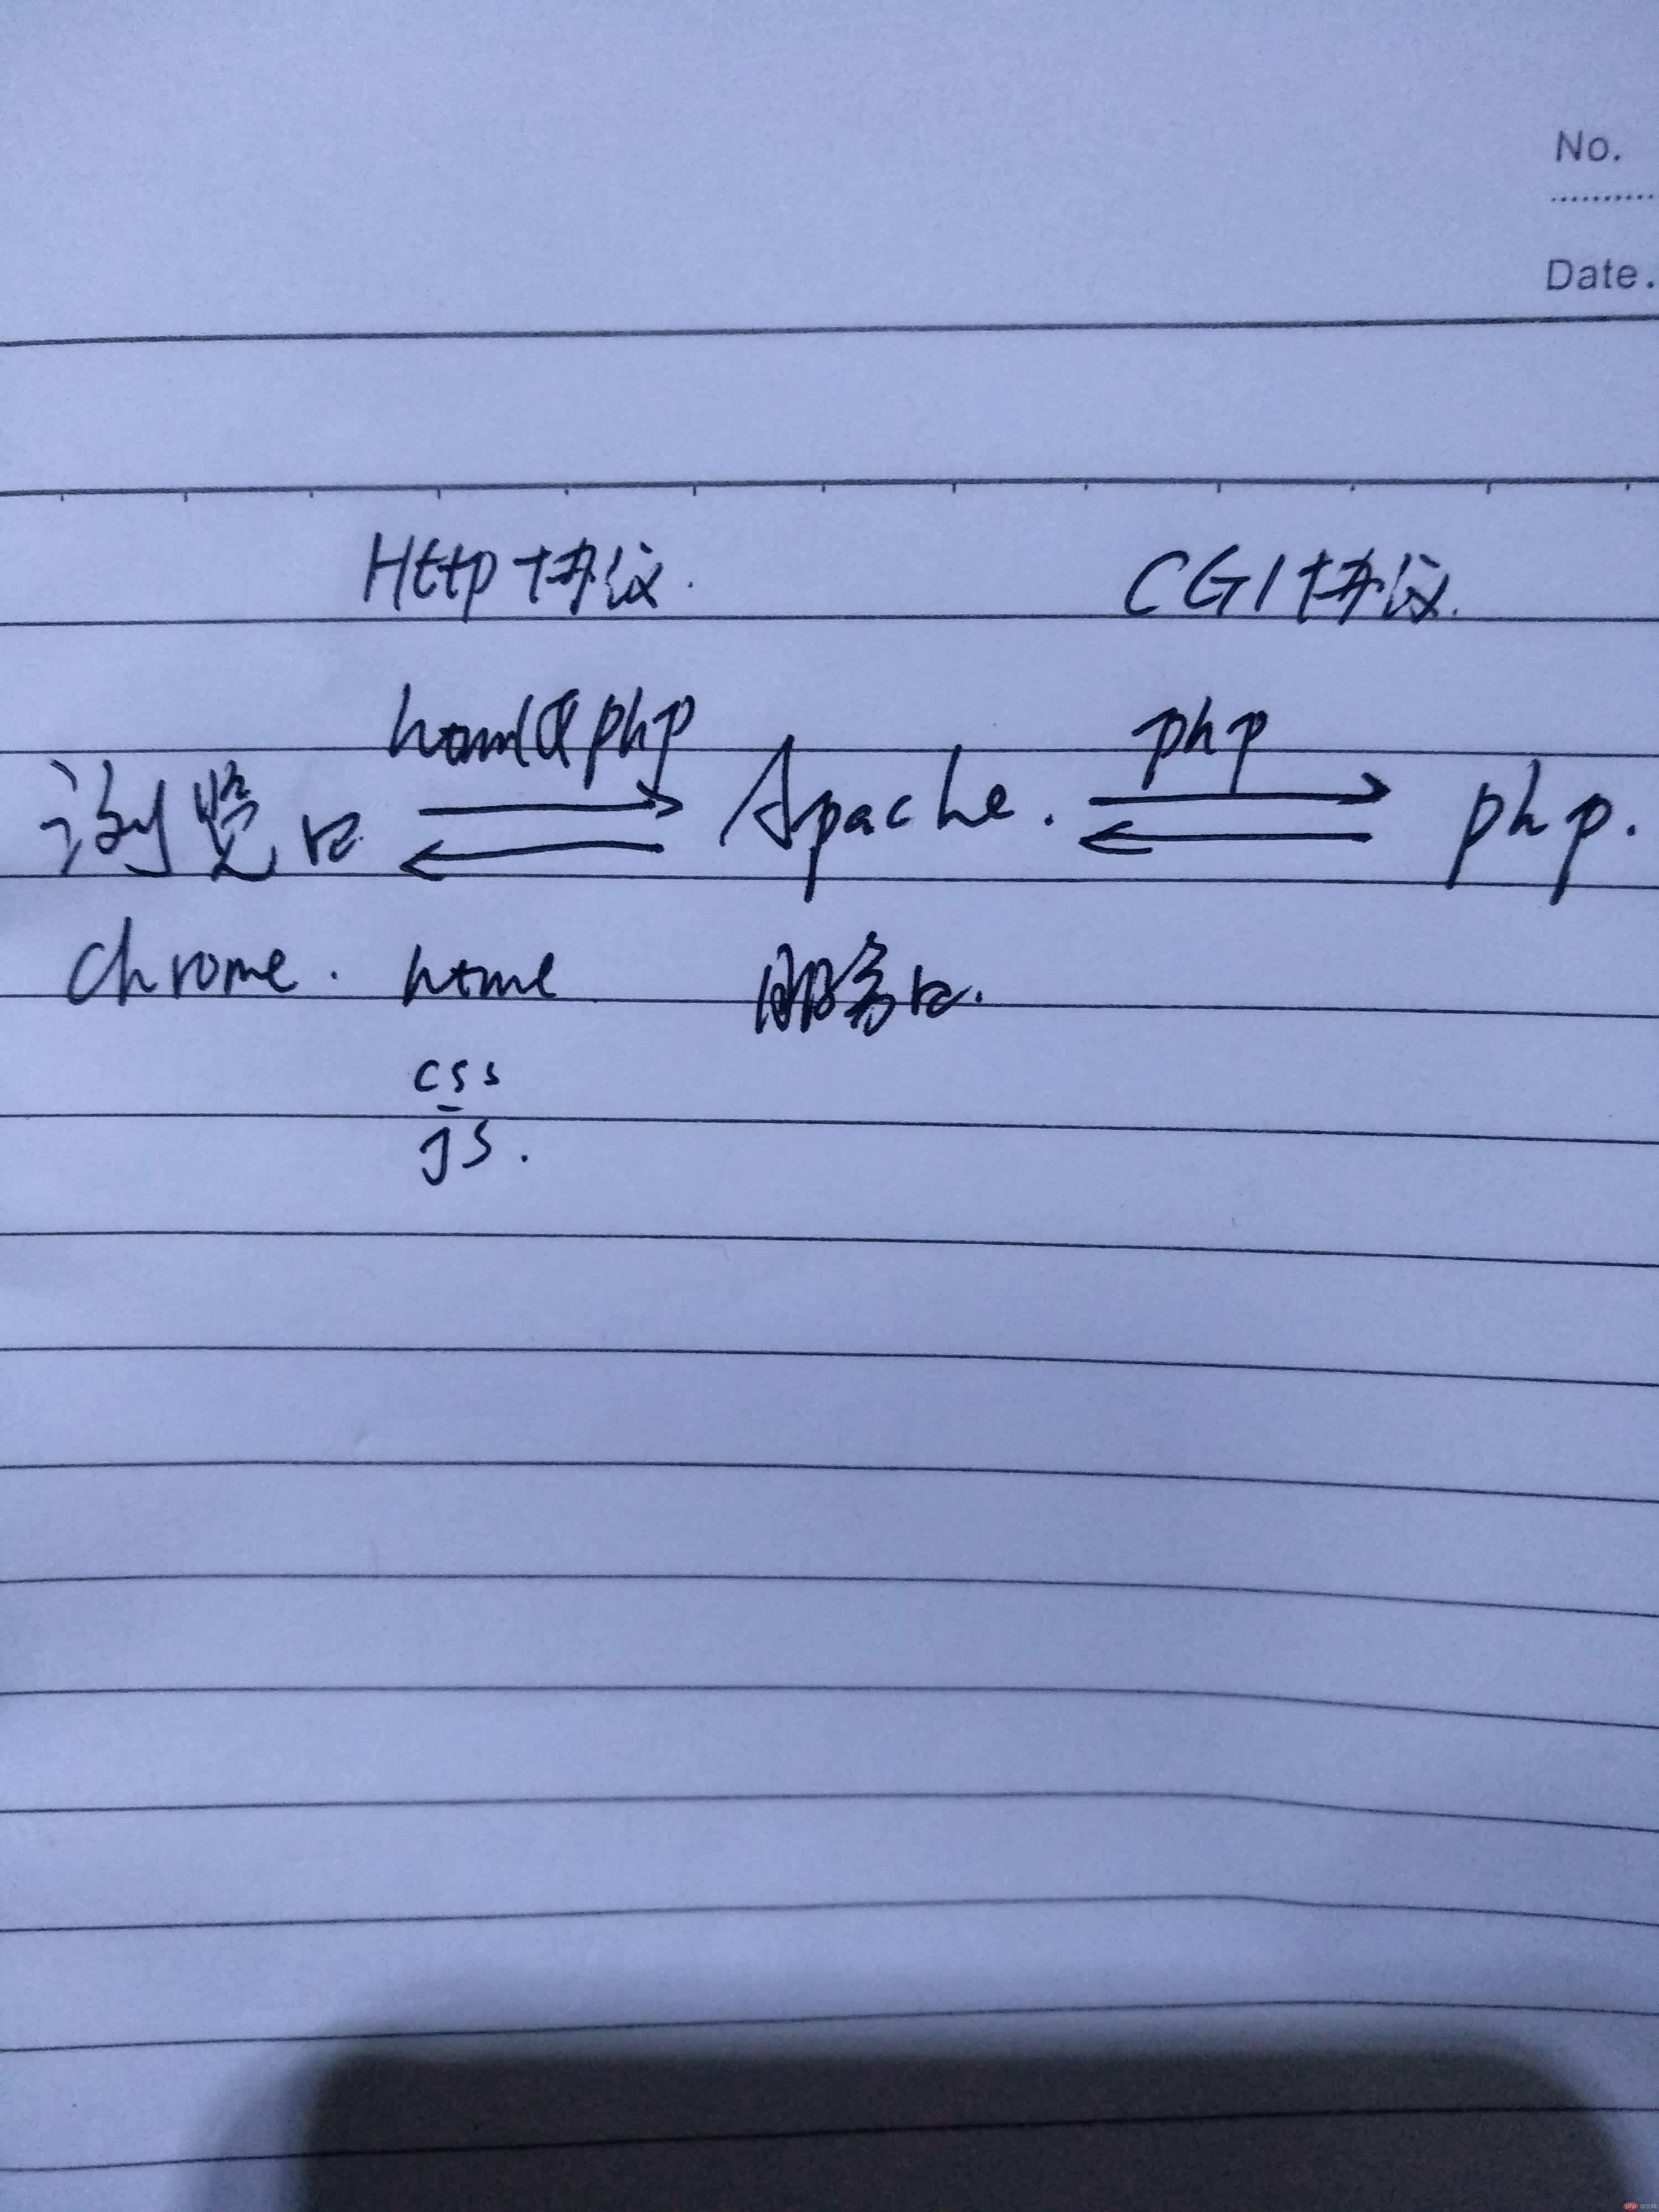 No.
Date.
Http协议. CGI协议.
html或php php
浏览器 Apache. php.
chrome. html 服务器.
css
js.
php